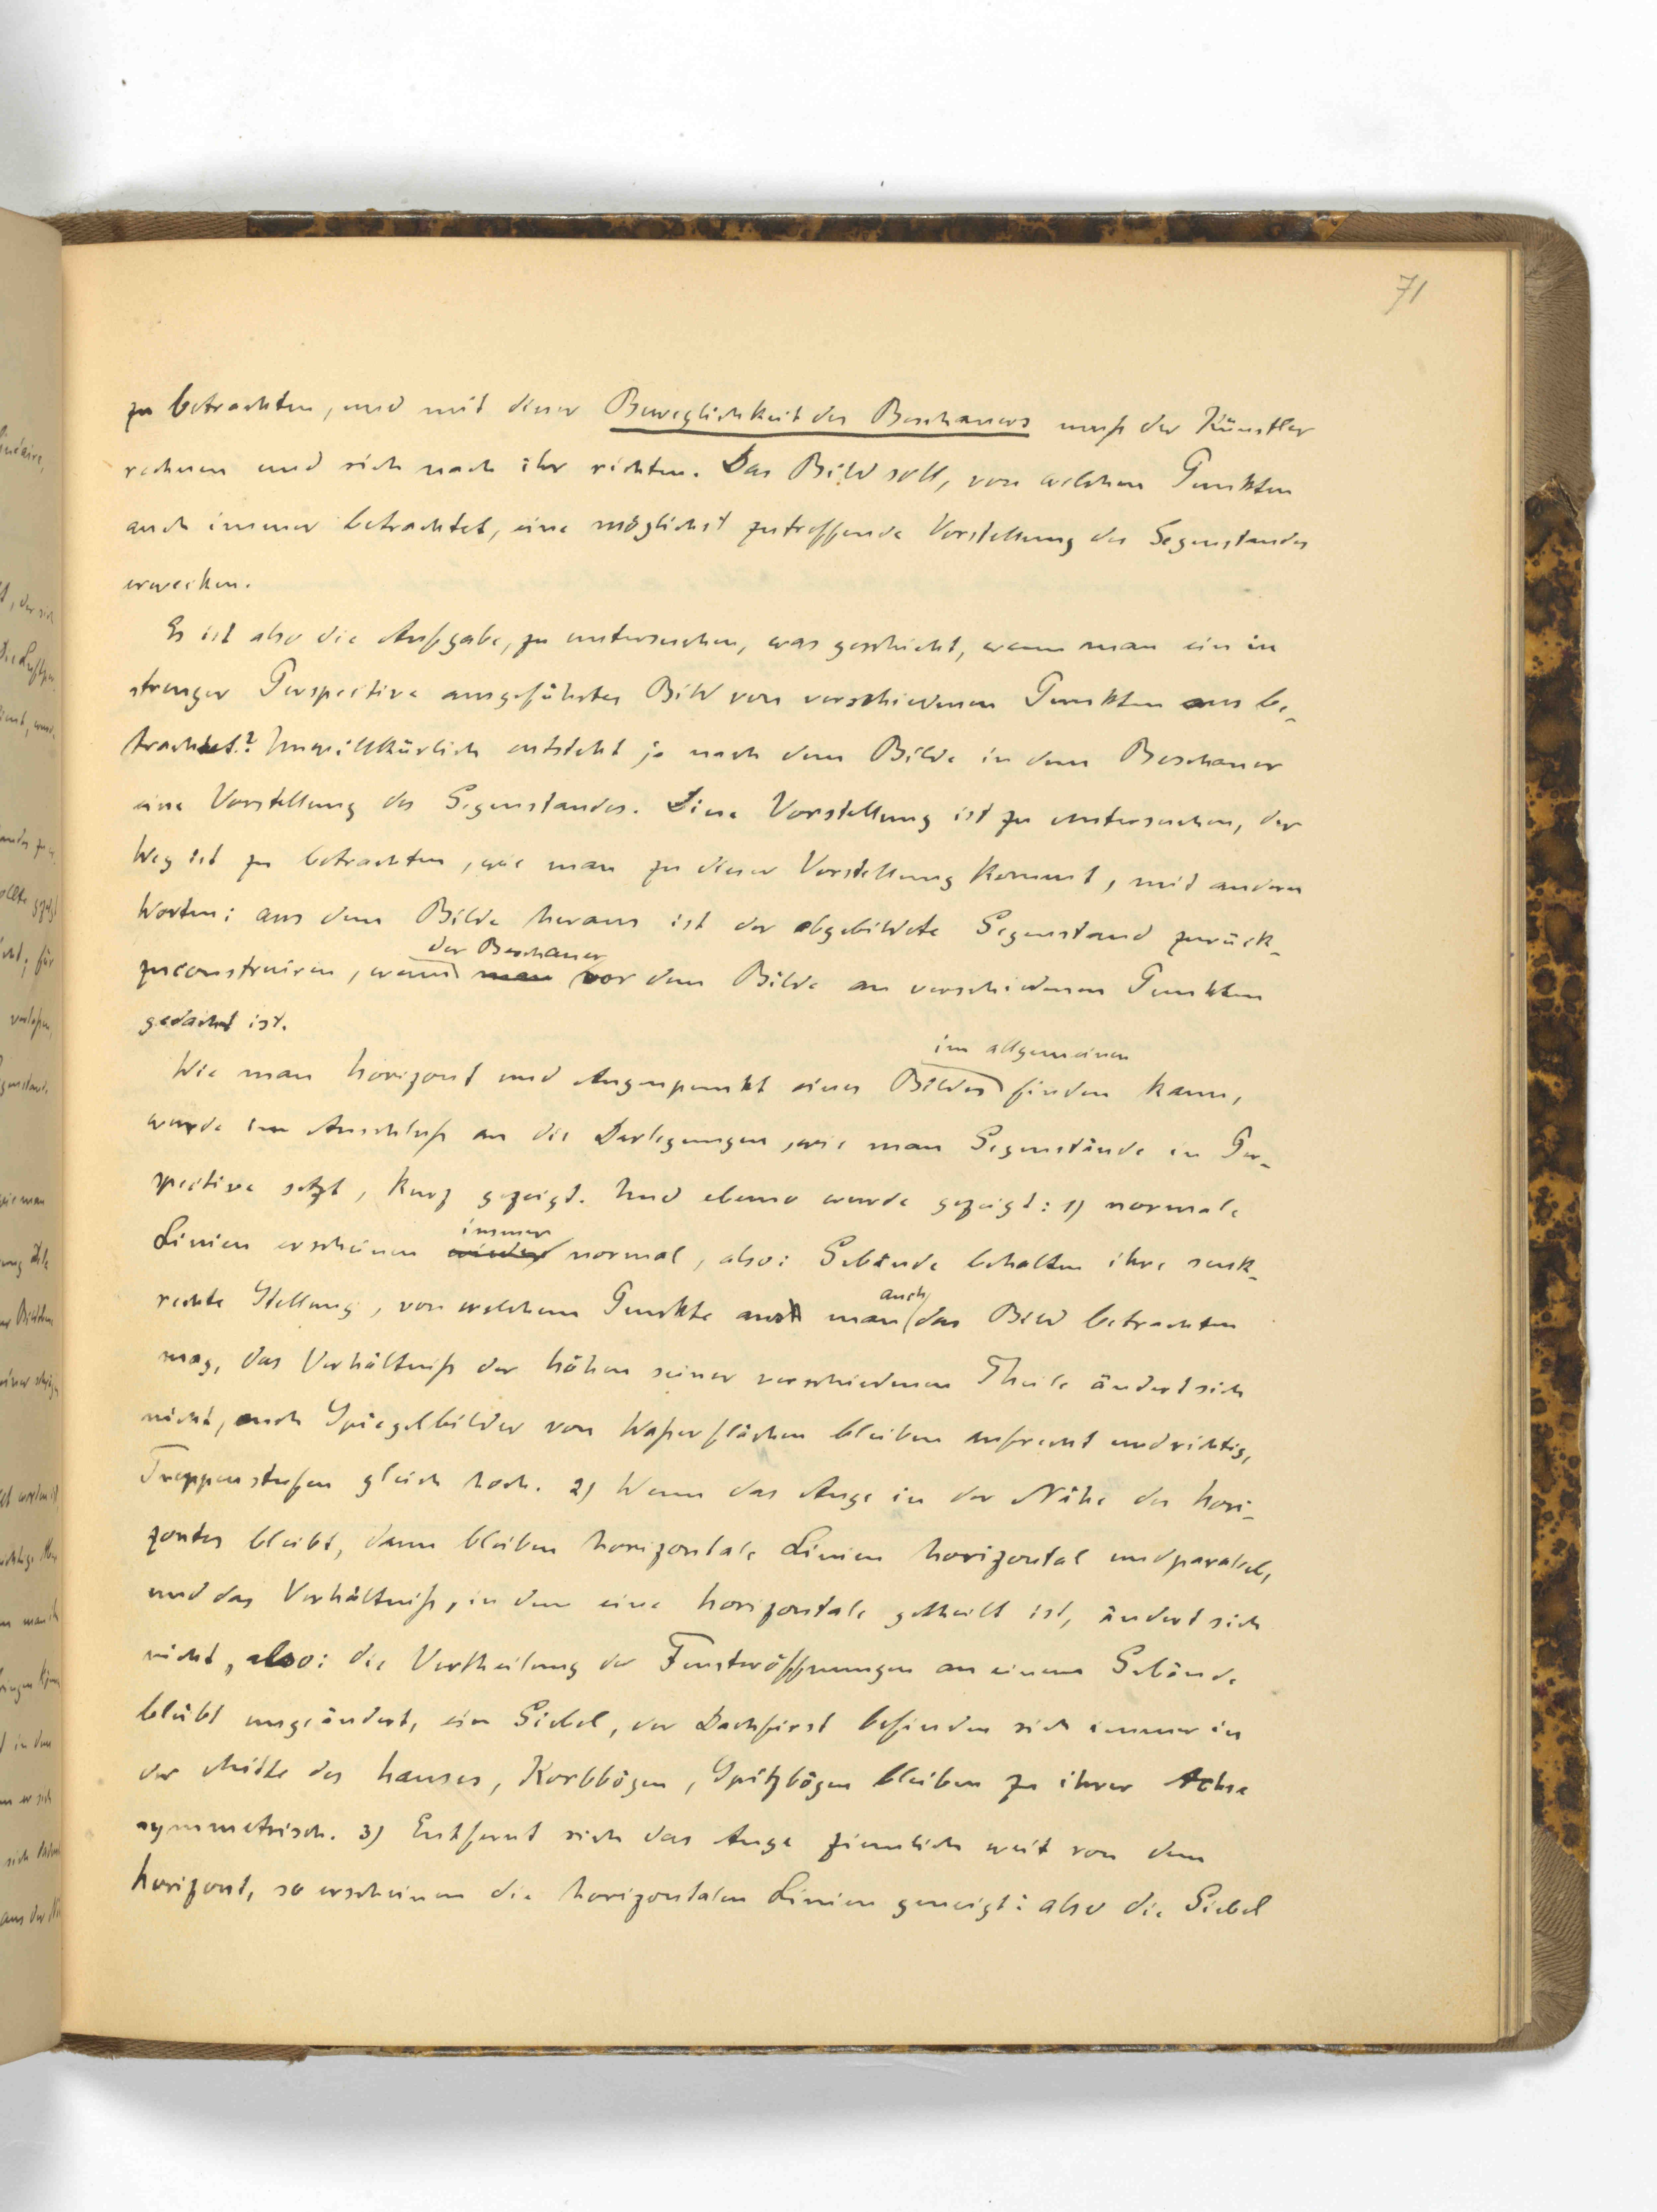 71
zu betrachten, und mit dieser Beweglichkeit des Beschauers muß der Künstler
rechnen und sich nach ihr richten. Das Bild soll, von welchen Punkten
auch immer betrachtet, eine möglichst zutreffende Vorstellung des Gegenstandes
erwecken.
Es ist also die Aufgabe, zu untersuchen, was geschieht, wenn man ein in
strenger Perspective ausgeführtes Bild von verschiedenen Punkten aus be-
trachtet? Unwillkürlich entsteht je nach dem Bilde in dem Beschauer
eine Vorstellung des Gegenstandes. Diese Vorstellung ist zu untersuchen, der
Weg ist zu betrachten, wie man zu dieser Vorstellung kommt, mit andern
Worten: aus dem Bilde heraus ist der abgebildete Gegenstand zurück-
der Beschauer
zuconstruiren, wenn man vor dem Bilde an verschiedenen Punkten
gedacht ist.
im allgemeinen
Wie man Horizont und Augenpunkt eines Bildes finden kann,
wurde im Anschluß an die Darlegungen, wie man Gegenstände in Per-
spective setzt, kurz gezeigt. Und ebenso wurde gezeigt: 1) normale
immer
Linien erscheinen wieder normal, also: Gebäude behalten ihre senk-
auch
rechte Stellung, von welchem Punkte man das Bild betrachten
mag, das Verhältniß der Höhen seiner verschiedenen Theile ändert sich
nicht, auch Spiegelbilder von Waßerflächen bleiben aufrecht und richtig,
Treppenstufen gleich hoch. 2) Wenn das Auge in der Nähe des Hori-
zontes bleibt, dann bleiben horizontale Linien horizontal und paralell,
und das Verhältniß, in dem eine horizontale getheilt ist, ändert sich
nicht, also: die Vertheilung der Fensteröffnungen an einem Gebäude
bleibt ungeändert, ein Giebel, der Dachfirst befinden sich immer in
der Mitte des Hauses, Korbbögen, Spitzbögen bleiben zu ihrer Achse
symmetrisch. 3) Entfernt sich das Auge ziemlich weit von dem
Horizont, so erscheinen die horizontalen Linien geneigt: also die Giebel